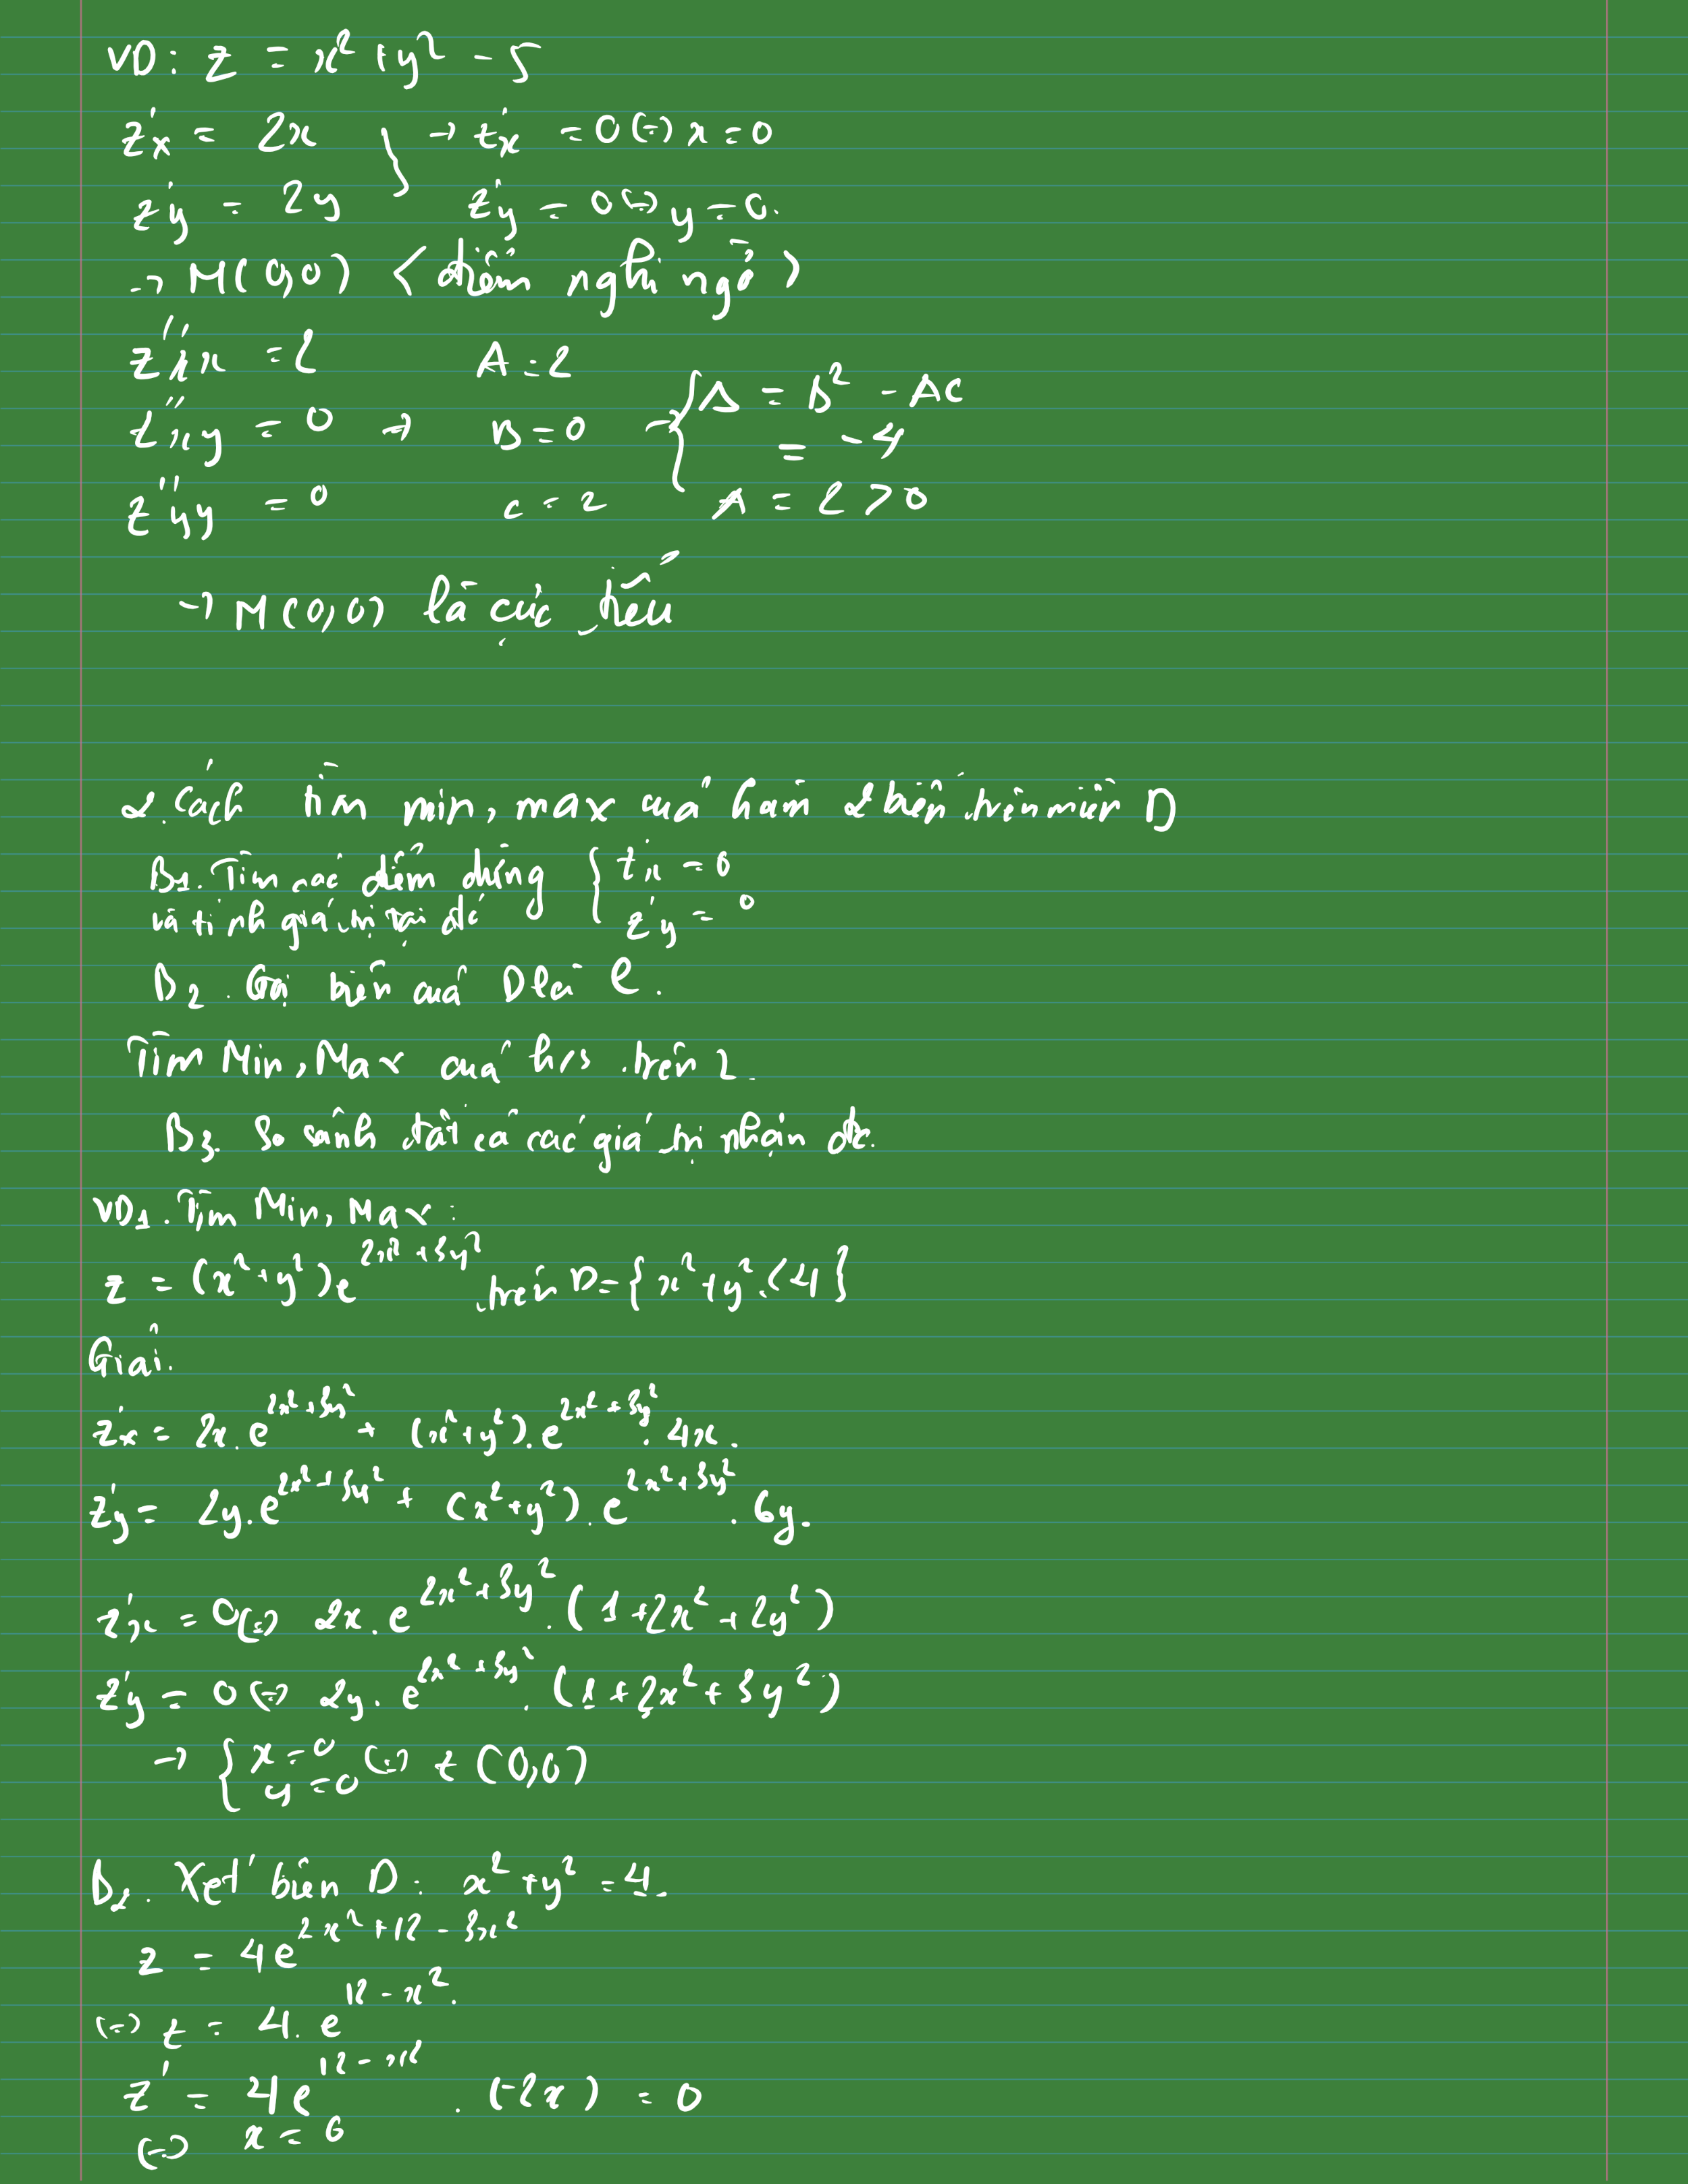 VD: z = x² + y² - 5
z'x = 2x } → z'x = 0 (=) x = 0
z'y = 2y z'y = 0 (=) y = 0.
→ M(0,0) < điểm nghi ngờ >
z''xx = 2 A = 2
z''xy = 0 → B = 0 → { Δ = B² - AC = -4
z''yy = 0 C = 2 A = 2 > 0
→ M(0,0) là cực tiểu
2. Cách tìm min, max của hàm 2 biến trên miền D
B1. Tìm các điểm dừng { z'x = 0
và tính giá trị tại đó z'y = 0
B2. Gọi biên của D là C.
Tìm Min, Max của h/s trên
B3. So sánh tất cả các giá trị nhận đc.
VD1. Tìm Min, Max:
z = (x² + y²)e^(2x² + 3y²) trên D = {x² + y² < 4}
Giải.
z'x = 2x.e^(2x² + 3y²) + (x² + y²).e^(2x² + 3y²).4x.
z'y = 2y.e^(2x² + 3y²) + (x² + y²).e^(2x² + 3y²).6y.
z'x = 0 (=) 2x.e^(2x² + 3y²).(1 + 2x² + 2y²)
z'y = 0 (=) 2y.e^(2x² + 3y²).(1 + 2x² + 3y²)
→ { x = 0
y = 0 (=) z(0,0)
B2. Xét biên D: x² + y² = 4.
z = 4e^(2x² + 12 - 3x²)
(=) z = 4.e^(12 - x²).
z' = 4e^(12 - x²).(-2x) = 0
(=) x = 0